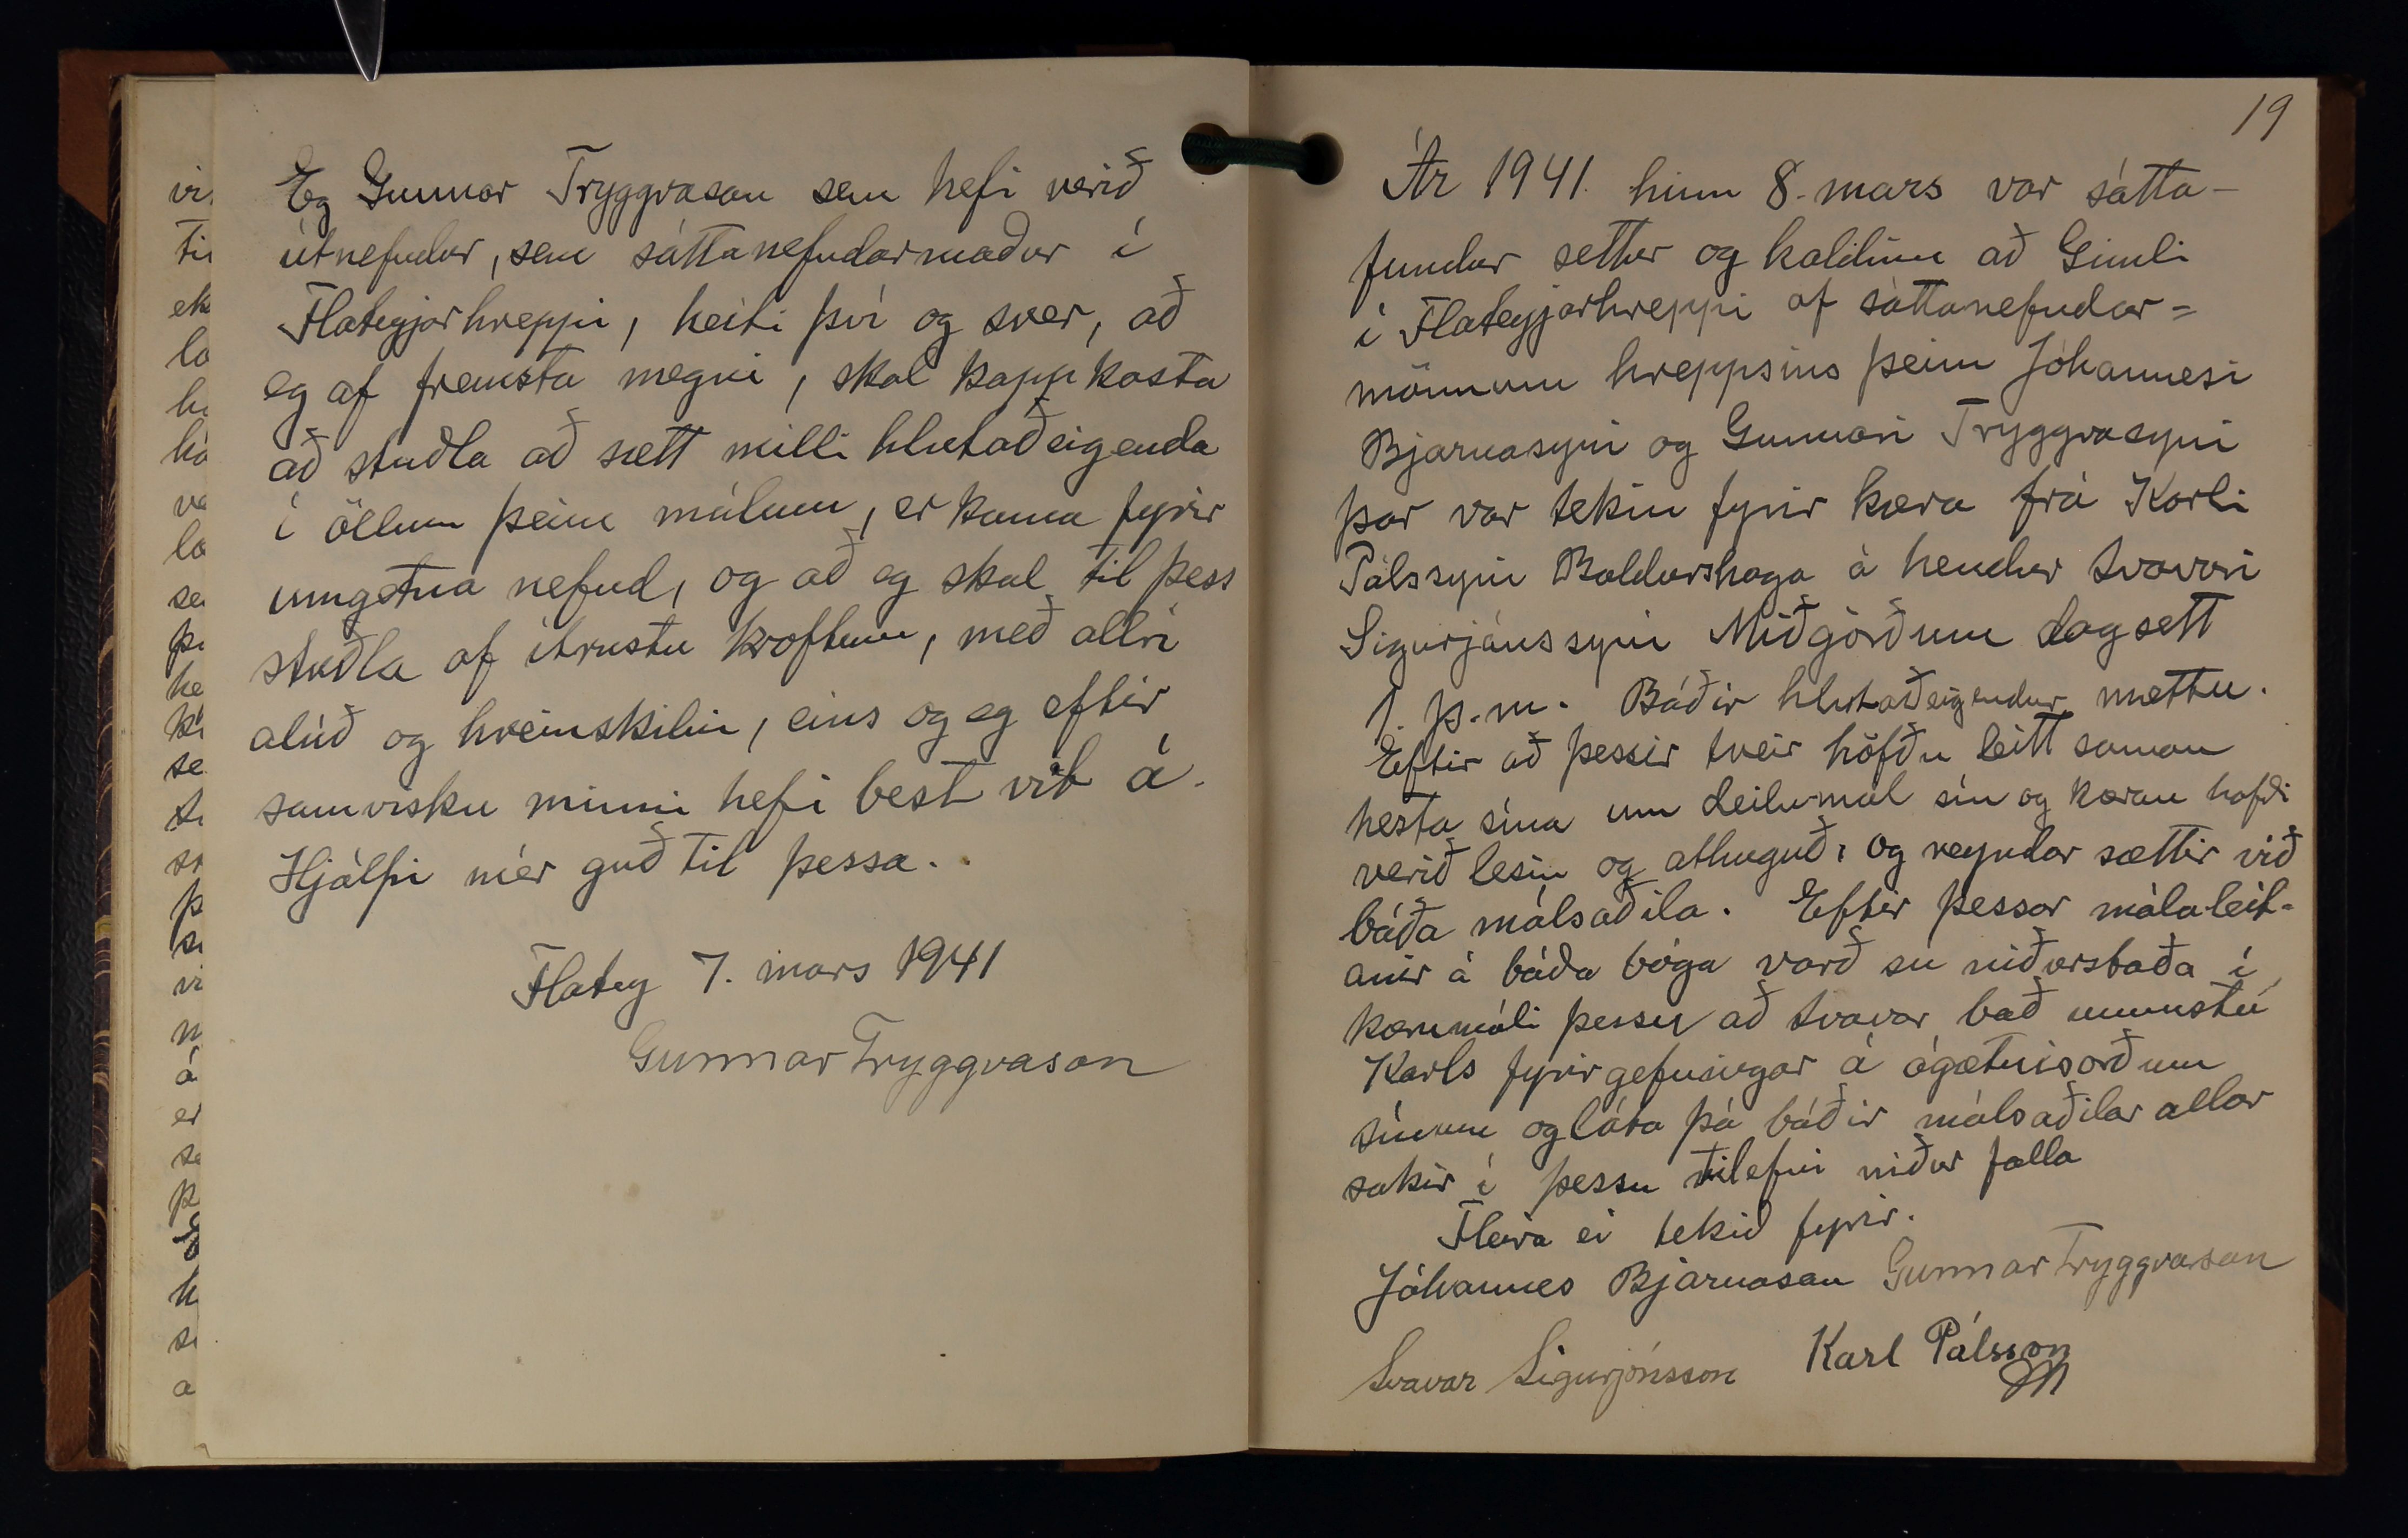 Eg Gunnar Tryggvason sem hefi verið
útnefndur, sem sáttanefndarmaður í
Flateyjarhreppi, heiti því og sver, að
eg af fremsta megni, skal kappkosta
að stuðla að sætt milli hlutaðeigenda
í öllum þeim málum, er koma fyrir
umgetna nefnd, og að eg skal til þess
stuðla af ítrustu kröftum, með allri
alúð og hreinskilni, eins og eg eftir
samvisku minni hefi best vit á.
Hjálpi mér guð til þessa.
Flatey 7. mars 1941
Gunnar Tryggvason
19
Ár 1941. hinn 8. mars var sátta-
fundur settur og haldinn að Gimli
í Flateyjarhreppi af sáttanefndar=
mönnum hreppsins þeim Jóhannesi
Bjarnasyni og Gunnari Tryggvasyni
þar var tekin fyrir kæra frá Karli
Pálssyni Baldurshaga á hendur Svavari
Sigurjónssyni Miðgörðum dagsett
1. þ.m. Báðir hlutaðeigendur mættu.
Eftir að þessir tveir höfðu leitt saman
hesta sína um deilumál sín og kæran hafði
verið lesin og athuguð, og reyndar sættir við
báða málsaðila. Eftir þessar málaleit-
anir á báða bóga varð sú niðurstaða í
kærumáli þessu að Svavar bað unnustu
Karls fyrirgefningar á ógætnisorðum
sínum og láta þá báðir málsaðilar allar
sakir í þessu tilefni niður falla
Fleira ei tekið fyrir.
Jóhannes Bjarnason Gunnar Tryggvason
Svavar Sigurjónsson Karl Pálsson